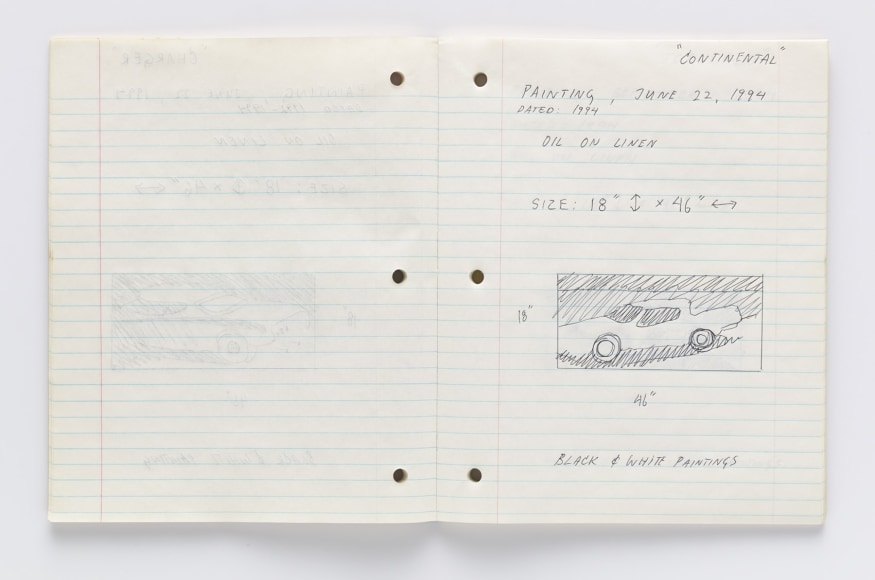 "CONTINENTAL"
PAINTING, JUNE 22, 1994
DATED: 1994
OIL ON LINEN
SIZE: 18" ↕ × 46" ↔
18"
46"
BLACK & WHITE PAINTINGS